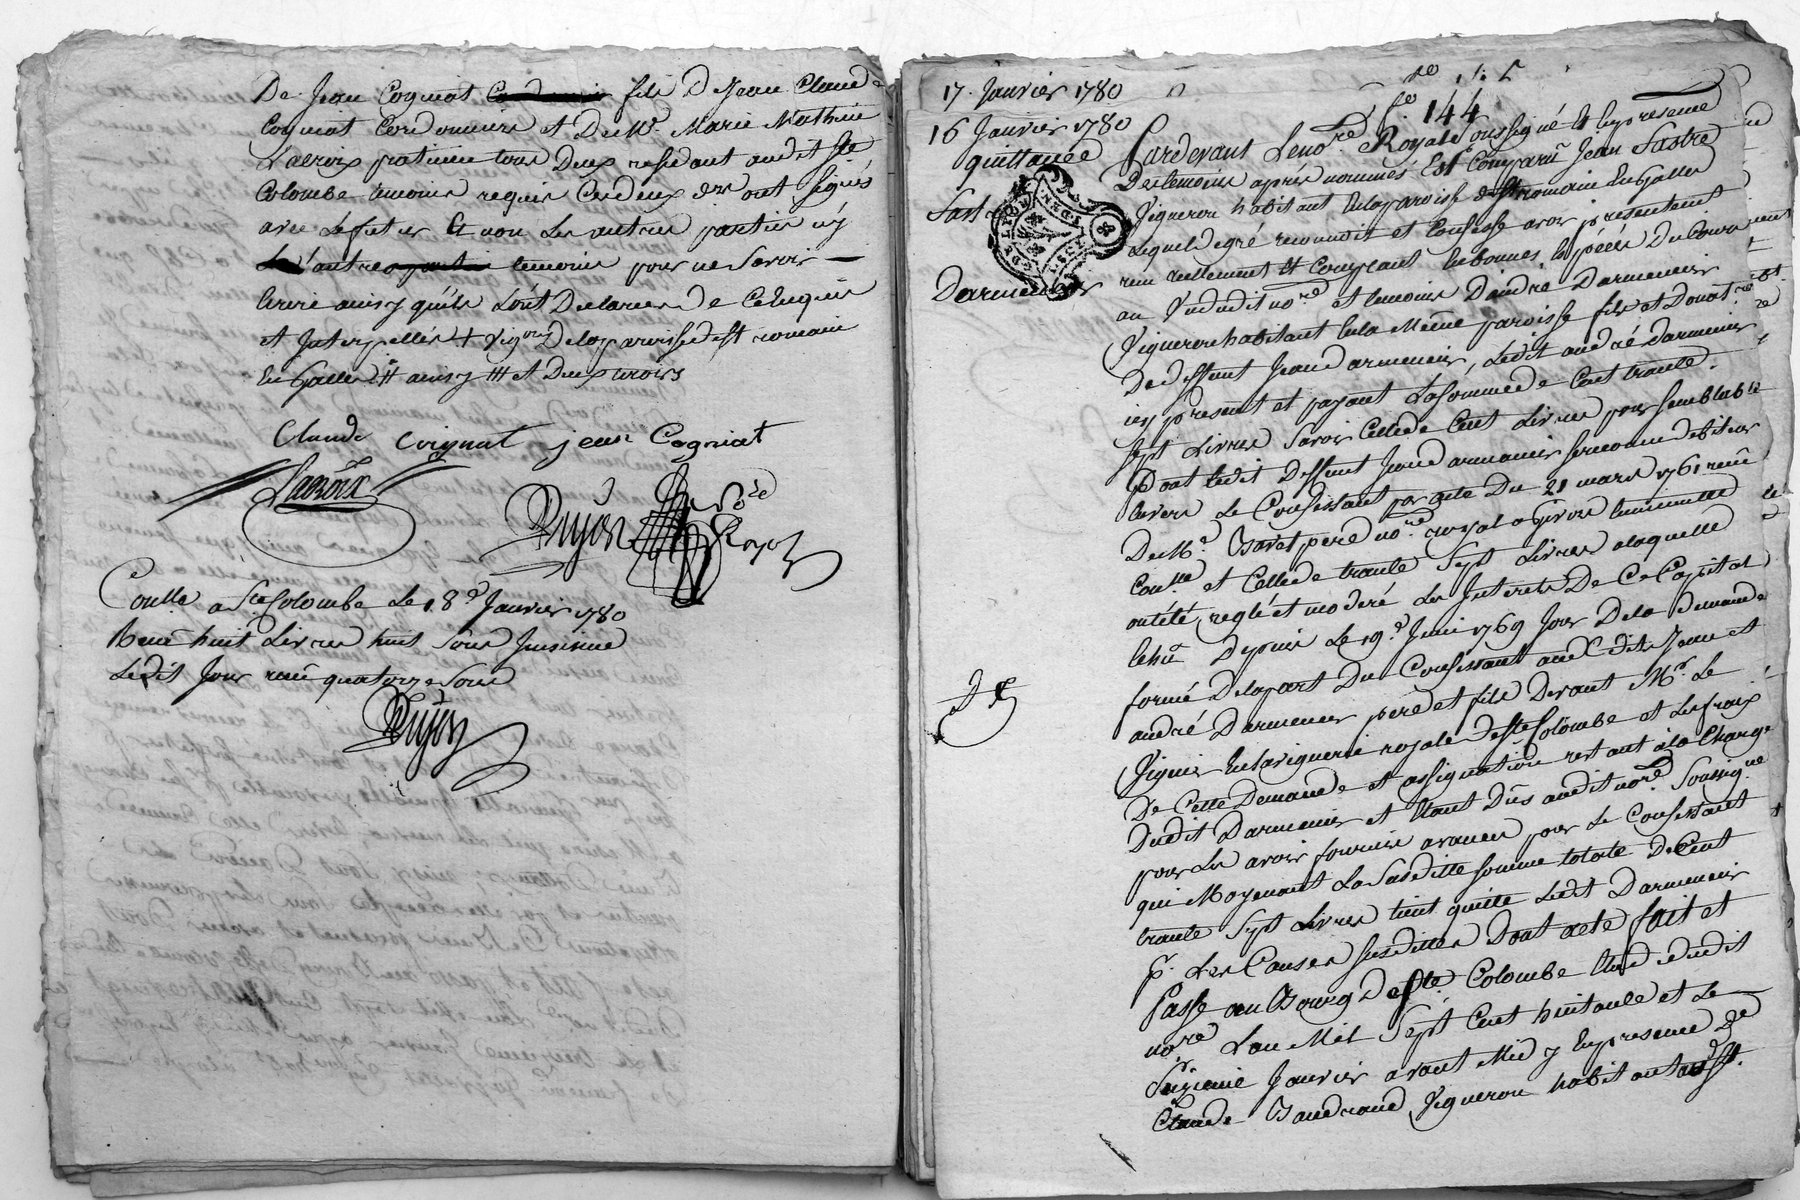 De Jean Cogniat fils De Jean Claude
Cogniat Cordonnier et De Mr. Marie Mathieu
Lacroix praticien tous Deux residant audit Ste
Colombe temoins requis Cesdeux Ers ont signés
avec Lefutur Et non Les autres parties ny
L'autre temoins pour ne savoir
Ecrire ainsy quils L'ont Declarés De Ce Enquis
et Interpellés + vigon Delaparoisse de St romain
En Galles # ainsy ### et Deux
Claude Coignat jean Cogniat
Lacroix
Dujon Nore Royal
Conlle a Ste Colombe Le 18e Janvier 1780
Receu huit Livres huit sous Insinué
Ledit Jour receu quatorze sous
Dujon
17. Janvier 1780
fo. 144
16 Janvier 1780
quittance
Sastre
Darmencier
Pardevant Le nore Royal soussigné Et En presence
Des temoins apres nommés Est Comparu Jean Sastre
Vigneron habitant En la paroisse de St romain En Galles
Lequel de gré reconnoit et Confesse avoir presentement
receu reellement Et Comptant En bonnes Espéces Du Cours
au Vu dudit nore et temoins D'andré Darmencier
Vigneron habitant En la Même paroisse fils et Donatre
De deffunt Jean darmencier, Ledit andré Darmencier
icy present et payant La somme de Cent trante
sept Livres savoir Celle de Cent Livres pour semblable
Dont Ledit Deffunt Jean darmencier
Envers Le Confessant par acte Du 21 mars 1761 receu
De Mr. Bavet pere nore royal a Givors
Conlle et Celle de trante sept Livres alaquelle
ont été reglé et moderé Les Interets De Ce Capital
Echû Depuis Le 19e Juin 1769 Jour De la demande
formé De la part Du Confessant audsdits Jean et
andré Darmencier pere et fils Devant Mr. Le
Viguier En la viguerie royale de Ste Colombe et Les fraix
De Cette Demande et assignation restant a la Charge
Dudit Darmencier et Etant Dûs audit nore soussigné
pour Les avoir fournis avances pour Le Confessant
qui Moyennant La Susditte somme totale De Cent
trante sept Livres tient quitte Ledit Darmencier
pr. Les Causes susdittes Dont acte fait et
Passé au Bourg de Ste Colombe Etude dudit
nore L'an Mil sept Cent huitante et Le
seizieme Janvier avant Midy En presence De
Claude Baudrand Vigneron habitant audt St.